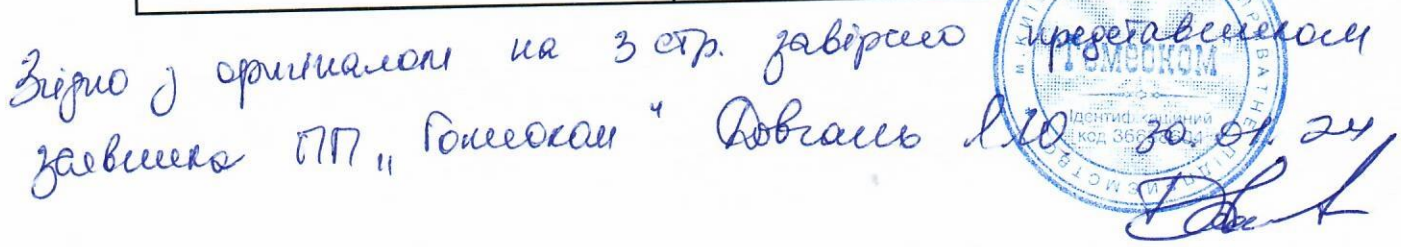 Згідно з оригіналом на 3 стр. завірено представником
заявника ПП „Гомеоком“ Довгань Л.Ю 30.01.24
М. КИЇВ
Гомеоком
Ідентифікаційний
код